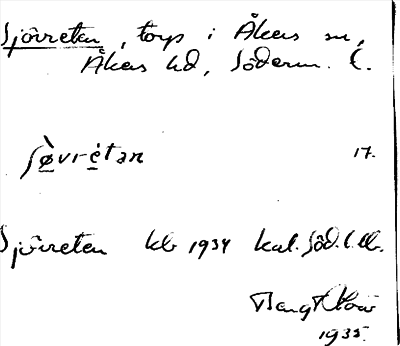 Sjövreten, torp i Åkers sn,
Åkers hd, Söderm. l.
ʃø̀vrétan 17.
Sjövreten kb 1934 kal. Söd. l. lb.
Bengt
1935.